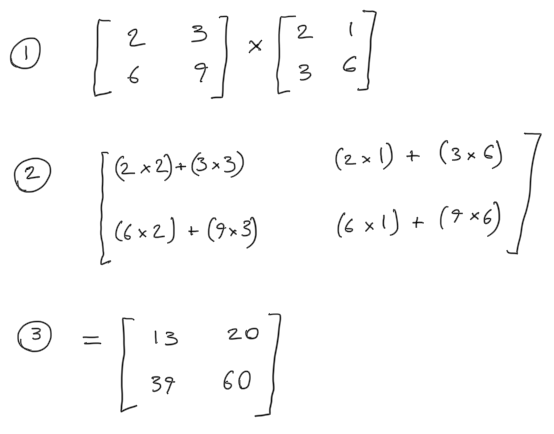 ① [ 2 3 ] × [ 2 1 ]
[ 6 9 ] [ 3 6 ]
② [ (2×2)+(3×3) (2×1) + (3×6) ]
[ (6×2) + (9×3) (6×1) + (9×6) ]
③ = [ 13 20 ]
[ 39 60 ]